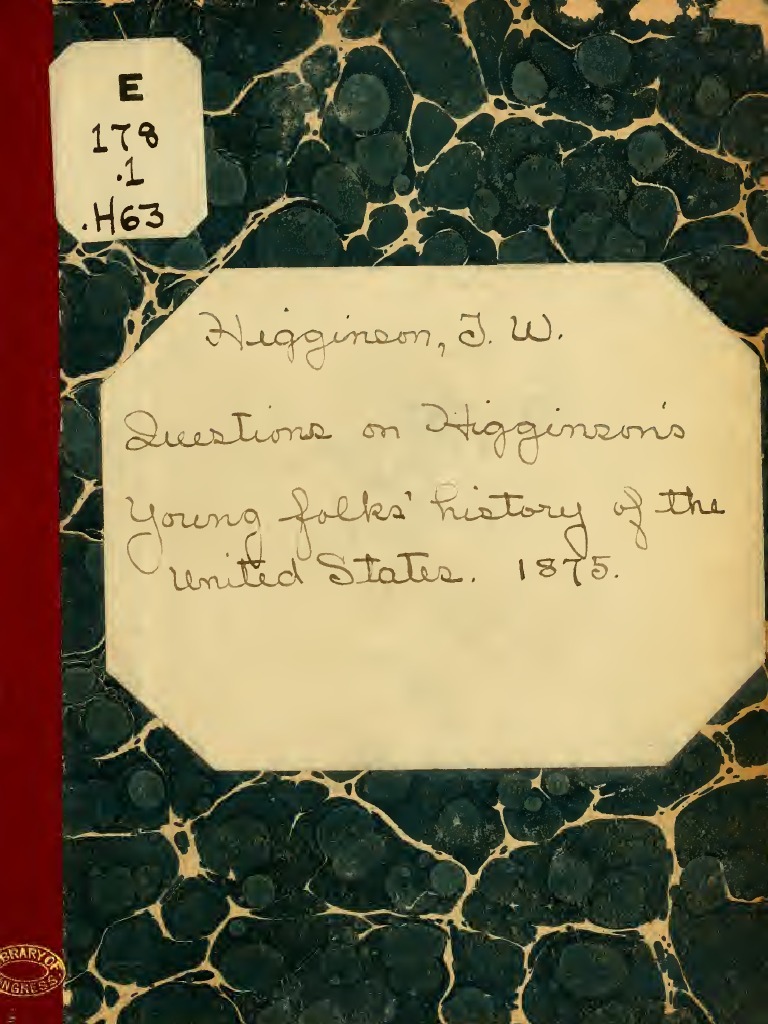 E
178
.1
.H63
Higginson, T. W.
Questions on Higginson's
Young folks' history of the
United States. 1875.
BRARY OF
NGRESS